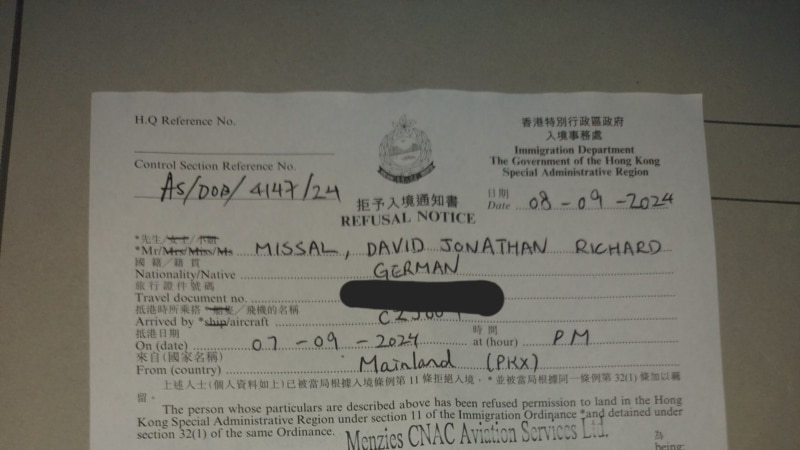 H.Q Reference No.
Control Section Reference No.
AS/DOB/4147/24
香港特別行政區政府
入境事務處
Immigration Department
The Government of the Hong Kong
Special Administrative Region
拒予入境通知書
REFUSAL NOTICE
日期
Date 08-09-2024
*先生/女士/小姐
*Mr/Mrs/Miss/Ms MISSAL, DAVID JONATHAN RICHARD
國籍/籍貫
Nationality/Native GERMAN
旅行證件號碼
Travel document no.
抵港時所乘搭 *船隻/飛機的名稱
Arrived by *ship/aircraft
抵港日期
On (date) 07-09-2024
時間
at (hour) PM
來自(國家名稱)
From (country) Mainland (PKX)
上述人士(個人資料如上)已被當局根據入境條例第11條拒絕入境，*並被當局根據同一條例第32(1)條加以羈
留。
The person whose particulars are described above has been refused permission to land in the Hong
Kong Special Administrative Region under section 11 of the Immigration Ordinance *and detained under
section 32(1) of the same Ordinance.
Menzies CNAC Aviation Services Ltd.
為
being: